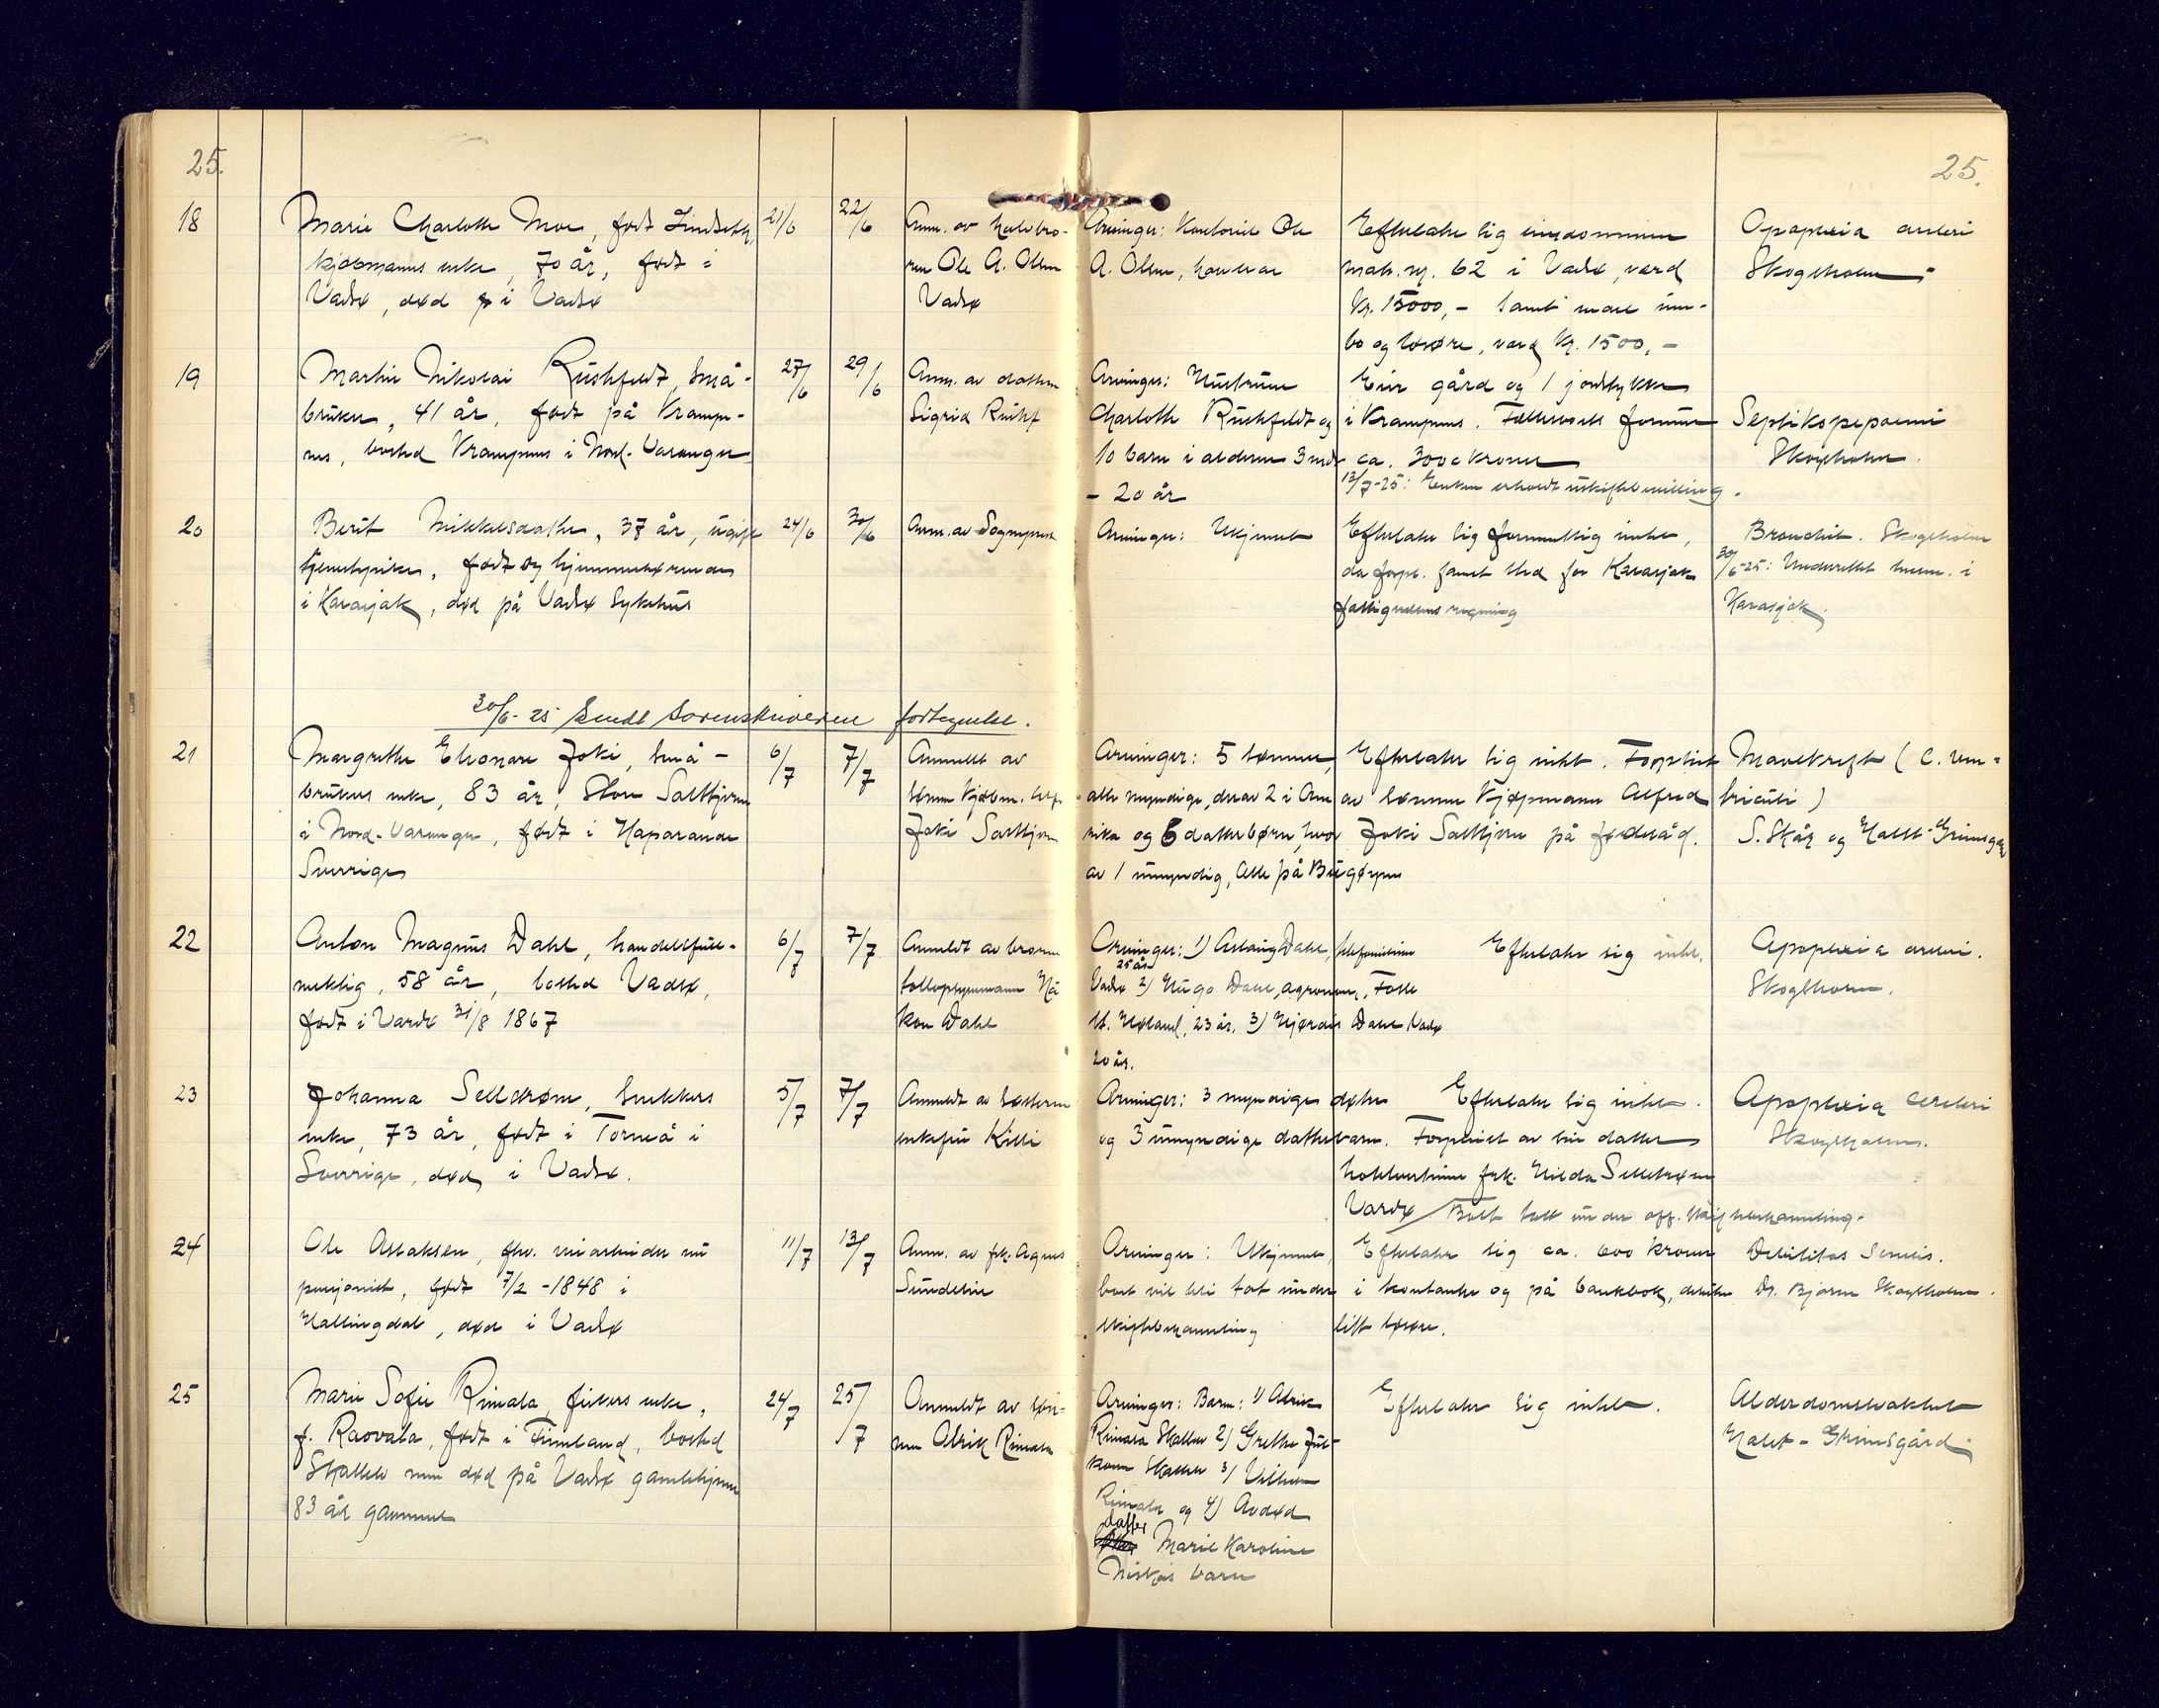 25.
25.
18
Marie Charlotte Moe, født Lindseth,
kjøbmanns enke, 70 år, født i
Vadsø, død i Vadsø
21/6
22/6
Anm. av halvbro-
ren Ole A. Olsen
Vadsø
Arvinger: Ole
A. Olsen,
Efterlater sig eiendommen
matr. nr. 62 i Vadsø, verd
Kr. 15000,- samt inn-
bo og løsøre, verd Kr. 1500,-
Apoplexia cerebri
Skogsholm
19
Martin Nikolai Rushfeldt, små-
bruker, 41 år, født på Kramp-
nes, bosted Krampnes i Nord-Varanger
27/6
29/6
Anm. av datteren
Sigrid Rushf
Arvinger: Hustruen
Charlotte Rushfeldt og
10 barn i alderen 3 mdr
- 20 år
Eier gård og 1 jordstykke
i Krampnes. Fellesboets formue
ca. 3000 kroner
13/7-25: Enken erholdt uskiftebevilling.
Skogsholm.
20
Berit Mikkelsdatter, 37 år, ugift
tjenestepike, født og hjemmehørende
i Karasjok, død på Vadsø Sykehus
24/6
30/6
Anm. av Sogneprest
Arvinger: Ukjent
Efterlater sig formentlig intet,
da forpl. fant sted for Karasjok
fattigvesens regning
Bronchit. Skogsholm
30/6-25: Underrettet lensm. i
Karasjok.
30/6-25 Sendt sorenskriveren fortegnelse.
21
Margrethe Elionare Joki, små-
brukers enke, 83 år, Store Saltkjern
i Nord-Varanger, født i Haparanda
Sverrige
6/7
7/7
Anmeldt av
sønnen kjøbm. Alfr.
Joki Saltkjern
Arvinger: 5 sønner,
alle myndige, derav 2 i Ame
rika og 6 datterbørn, hvor
av 1 umyndig, alle på Bugøynes
Efterlater sig intet. Forpleiet
av sønnen kjøpmann Alfred
Joki Saltkjern på føderåd.
Mavekreft (C. ven-
triculi)
S. Skår og Halst-Grimsgår
22
Anton Magnus Dahl, handelsfull-
mektig, 58 år, bosted Vadsø,
født i Vardø 31/8 1867
6/7
7/7
Anmeldt av broren
tolloppsynsmann Hå
kon Dahl
Arvinger: 1) Aslaug Dahl, telefonistinne
25 år
Vadsø 2) Hugo Dahl, agronom, Foss
st. Høland, 23 år, 3) Hjørdis Dahl Vadsø
20 år.
Efterlater sig intet.
Apoplexia cerebri.
Skogsholm.
23
Johanna Sellstrøm, snekkers
enke, 73 år, født i Torneå i
Sverrige, død i Vadsø.
5/7
7/7
Anmeldt av søsteren
enkefru Killi
Arvinger: 3 myndige døtre
og 3 umyndige datterbarn.
Efterlater sig intet.
Forpleiet av sin datter
hotelvertinne frk. Hilda Sellstrøm
Vardø Boet tatt under off. skiftebehandling.
Apoplexia cerebri
Skogsholm.
24
Ole Aslaksen, fhv. veiarbeider nu
pensjonist, født 7/2-1848 i
Hallingdal, død i Vadsø
11/7
13/7
Anm. av frk. Agnes
Sundelin
Arvinger: Ukjent,
boet vil bli tat under
skiftebehandling
Efterlater sig ca. 600 kroner
i kontanter og på bankbok, desuten
litt løsøre.
Debilitas senilis.
Dr. Bjarne Skogsholm.
25
Marie Sofie Rimala, fiskers enke,
f. Raovala, født i Finland, bosted
Skallelv men død på Vadsø gamlehjem
83 år gammel
24/7
25/7
Anmeldt av søn-
nen Alrik Rimala
Arvinger: Barn: 1) Alrik
Rimala Skallelv 2) Grethe
Skallelv 3) Vilhelm
Rimala og 4) Avdød
datter
Marie Karoline
Niskas barn
Efterlater sig intet.
Alderdomssvakhet
Halst-Grimsgård